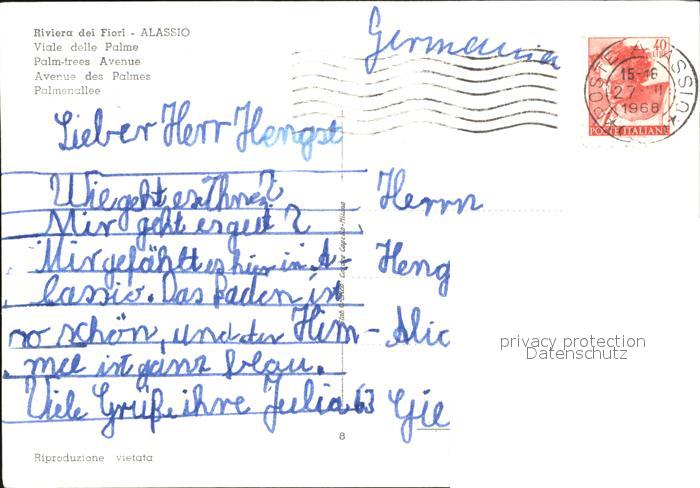 Riviera dei Fiori - ALASSIO
Viale delle Palme
Palm-trees Avenue
Avenue des Palmes
Palmenallee
Germania
40
LIRE
POSTE ITALIANE
15-16
27
1968
Lieber Herr Hengst
Wie geht es Ihnen?
Mir geht es gut?
Mir gefällt es hier in A-
lassio. Das Baden ist
so schön, und der Him-
mel ist ganz blau.
Viele Grüße ihre Julia 63
Herrn
Heng
Alic
Gie
privacy protection
Datenschutz
8
Riproduzione vietata